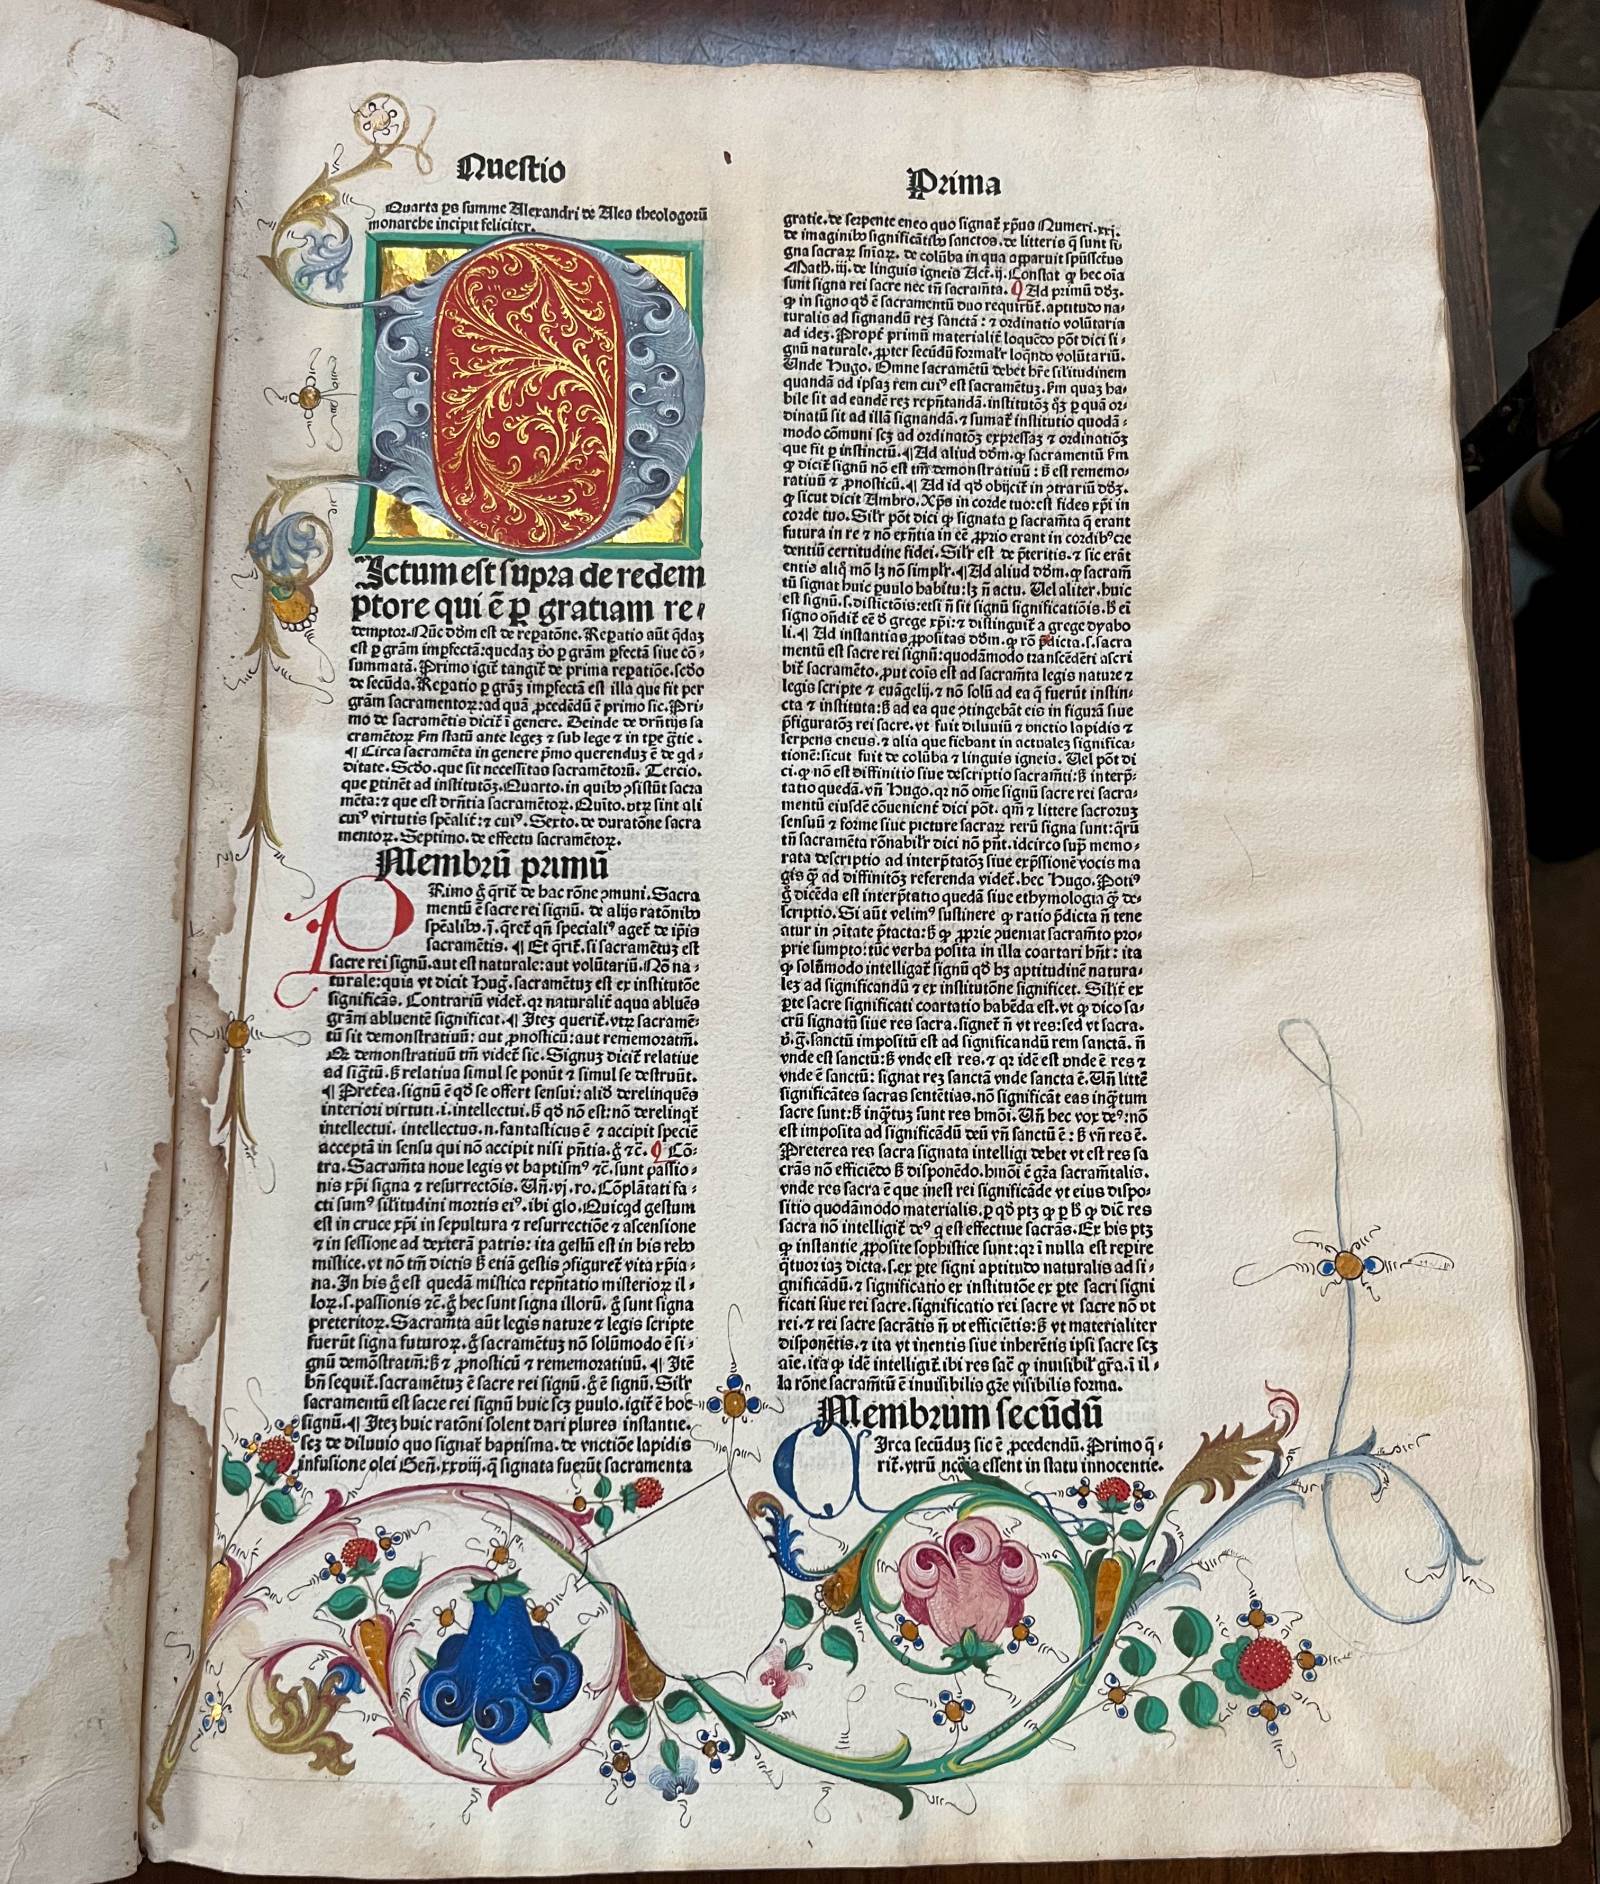 Questio
Prima
Quarta ps summe Alexandri de Ales theologorū
monarche incipit feliciter.
D
Ictum est supra de redem
ptore qui ē ꝑ gratiam re⸗
demptor. Nūc dōm est de reꝑatōne. Reꝑatio aūt q̄daꝫ
est ꝑ grām imꝑfectā: quedaꝫ ꝟo ꝑ grām ꝑfectā siue cō⸗
summatā. Primo igit̄ tangit̄ de prima reꝑatiōe. scd̄o
de secūda. Reꝑatio ꝑ grāꝫ imꝑfectā est illa que fit per
grām sacramentoꝝ: ad quā ꝓcedēdū ē primo sic. Pri⸗
mo de sacramētis dicit̄ ī genere. Deinde de dr̄ntijs sa
cramētoꝝ ẜm statū ante legeꝫ ⁊ sub lege ⁊ in tꝑe gr̄tie.
¶ Circa sacramēta in genere p̄mo querenduꝫ ē de qd⸗
ditate. Scd̄o. que sit necessitas sacramētorū. Tercio.
que ꝑtinēt ad institutōꝫ. Quarto. in quibꝰ ꝯsistūt sacra
mēta: ⁊ que est dr̄ntia sacramētoꝝ. Quīto. vtꝝ sint ali
cuiꝰ virtutis spēalit̄: ⁊ cuiꝰ. Sexto. de duratōne sacra
mentoꝝ. Septimo. de effectu sacramētoꝝ.
Membrū primū
PRimo ḡ q̄rit̄ de hac rōne ꝯmuni. Sacra
mentū ē sacre rei signū. de alijs ratōnibꝰ
spēalibꝰ. ī. q̄ret̄ qn̄ specialiꝰ aget̄ de ip̄is
sacramētis. ¶ Et q̄rit̄. si sacramētuꝫ est
sacre rei signū. aut est naturale: aut volūtariū. Nō na⸗
turale: quia vt dicit Huḡ. sacramētuꝫ est ex institutōe
significās. Contrariū videt̄. qꝛ naturalit̄ aqua abluēs
grām abluentē significat. ¶ Iteꝫ querit̄. vtꝝ sacramē⸗
tū sit demonstratiuū: aut ꝓnosticū: aut rememoratīn.
Qꝛ demonstratiuū tm̄ videt̄ sic. Signuꝫ dicit̄ relatiue
ad sigt̄ū. ẞ relatiua simul se ponūt ⁊ simul se destruūt.
¶ Pret̄ea. signū ē qd̄ se offert sensui: aliō derelinquēs
interiori virtuti. i. intellectui. ẞ qd̄ nō est: nō derelinqt̄
intellectui. intellectus. n. fantasticus ē ⁊ accipit speciē
acceptā in sensu qui nō accipit nisi pn̄tia. ḡ ⁊c̄. ¶ Cō⸗
tra. Sacram̄ta noue legis vt baptismꝰ ⁊c̄. sunt passio⸗
nis xp̄i signa ⁊ resurrectōis. Un̄. vj. ro. Cōplātati fa⸗
cti sumꝰ sil̄itudini mortis eiꝰ. ibi glo. Quicqd̄ gestum
est in cruce xp̄i in sepultura ⁊ resurrectiōe ⁊ ascensione
⁊ in sessione ad dexterā patris: ita gestū est in his rebꝰ
mistice. vt nō tm̄ dictis ẞ etiā gestis ꝯfiguret̄ vita xp̄ia⸗
na. In his ḡ est quedā mistica rep̄ntatio misterioꝝ il⸗
loꝝ. s. passionis ⁊c̄. ḡ hec sunt signa illorū. ḡ sunt signa
preteritoꝝ. Sacram̄ta aūt legis nature ⁊ legis scripte
fuerūt signa futuroꝝ. ḡ sacramētuꝫ nō solūmodo ē si⸗
gnū demōstratīn: ẞ ⁊ ꝓnosticū ⁊ rememoratiuū. ¶ Itē
bn̄ sequit̄. sacramētuꝫ ē sacre rei signū. ḡ ē signū. Sil̄r
sacramentū est sacre rei signū huic scꝫ ꝑuulo. igit̄ ē hoc
signū. ¶ Iteꝫ huic ratōni solent dari plures instantie.
scꝫ de diluuio quo signat̄ baptisma. de vnctiōe lapidis
infusione olei Gen̄. xxviij. q̄ signata fuerūt sacramenta
gratie. de serpente eneo quo signat̄ xp̄us Numeri. xxj.
de imaginibꝰ significātibꝰ sanctos. de litteris q̄ sunt si
gna sacraꝝ sn̄iaꝝ. de colūba in qua apparuit spūssctūs
Math. iij. de linguis igneis Act̄. ij. Constat ꝙ hec oīa
sunt signa rei sacre nec tn̄ sacram̄ta. ¶ Ad primū dōꝫ.
ꝙ in signo qd̄ ē sacramentū duo requirūt̄. aptitudo na⸗
turalis ad signandū reꝫ sanctā: ⁊ ordinatio volūtaria
ad ideꝫ. Propt̄ primū materialit̄ loquēdo pōt dici si⸗
gnū naturale. ꝓpter secūdū formalr̄ loqn̄do volūtariū.
Unde Hugo. Omne sacramētū debet hr̄e sil̄itudinem
quandā ad ipsaꝫ rem cuiꝰ est sacramētuꝫ. ẜm quaꝫ ha⸗
bile sit ad eandē reꝫ rep̄ntandā. institutōꝫ qꝫ ꝑ quā or⸗
dinatū sit ad illā signandā. ⁊ sumat̄ institutio quodā⸗
modo cōmuni scꝫ ad ordinatōꝫ expressaꝫ ⁊ ordinatiōꝫ
que fit ꝑ instinctū. ¶ Ad aliud dōm. ꝙ sacramentū ẜm
ꝙ dicit̄ signū nō est tm̄ demonstratiuū: ẞ est rememo⸗
ratiuū ⁊ ꝓnosticū. ¶ Ad id qd̄ obijcit̄ in ꝯtrariū dōꝫ.
ꝙ sicut dicit Ambro. Xp̄s in corde tuo: est fides xp̄i in
corde tuo. Sil̄r pōt dici ꝙ signata ꝑ sacram̄ta q̄ erant
futura in re ⁊ nō exn̄tia in eē ꝓprio erant in cordibꝰ cre
dentiū certitudine fidei. Sil̄r est de p̄teritis. ⁊ sic erāt
entia aliq̄ mō lꝫ nō simplr̄. ¶ Ad aliud dōm. ꝙ sacram̄
tū signat huic ꝑuulo habitu: lꝫ n̄ actu. Uel aliter. huic
est signū. s. distictōis: etsi n̄ sit signū significatiōis. ẞ ei
signo ondit̄ eē ð grege xp̄i: ⁊ distinguit̄ a grege dyabo
li. ¶ Ad instantias ꝓpositas dōm. ꝙ rō p̄dicta. s. sacra
mentū est sacre rei signū: quodāmodo transcēdēti ascri
bit̄ sacramēto. ꝓut cōis est ad sacram̄ta legis nature ⁊
legis scripte ⁊ euāgelij. ⁊ nō solū ad ea q̄ fuerūt instin⸗
cta ⁊ instituta: ẞ ad ea que ꝯtingebāt eis in figurā siue
p̄figuratōꝫ rei sacre. vt fuit diluuiū ⁊ vnctio lapidis ⁊
serpens eneus. ⁊ alia que fiebant in actualeꝫ significa⸗
tionē: sicut fuit de colūba ⁊ linguis igneis. Uel pōt di
ci. ꝙ nō est diffinitio siue descriptio sacram̄ti: ẞ interp̄⸗
tatio quedā. vn̄ Hugo. qꝛ nō om̄e signū sacre rei sacra⸗
mentū eiusdē cōuenient̄ dici pōt. qm̄ ⁊ littere sacroruꝫ
sensuū ⁊ forme siue picture sacraꝝ rerū signa sunt: q̄rū
tn̄ sacramēta rōnabil̄r dici nō pn̄t. idcirco sup̄ memo⸗
rata descriptio ad interp̄tatōꝫ siue exp̄ssionē vocis ma
gis q̄ꝫ ad diffinitōꝫ referenda videt̄. hec Hugo. Potiꝰ
ḡ dicēda est interp̄tatio quedā siue ethymologia q̄ꝫ de⸗
scriptio. Si aūt velimꝰ sustinere ꝙ ratio p̄dicta n̄ tene
atur in ꝯitate p̄tacta: ẞ ꝙ ꝓprie ꝯueniat sacram̄to pro⸗
prie sumpto: tūc verba posita in illa coartari hn̄t: ita
ꝙ solūmodo intelligat̄ signū qd̄ hꝫ aptitudinē natura⸗
leꝫ ad significandū ⁊ ex institutōne significet. Silit̄ ex
ꝑte sacre significati coartatio habēda est. vt ꝙ dico sa⸗
crū signatū siue res sacra. signet̄ n̄ vt res: sed vt sacra.
ð. g̅. sanctū impositū est ad significandū rem sanctā. n̄
vnde est sanctū: ẞ vnde est res. ⁊ qꝛ idē est vnde ē res ⁊
vnde ē sanctū: signat reꝫ sanctā vnde sancta ē. Un̄ litte
significātes sacras sentētias. nō significāt eas inq̄tum
sacre sunt: ẞ inq̄tuꝫ sunt res hmōi. Un̄ hec vox deꝰ: nō
est imposita ad significādū deū vn̄ sanctū ē: ẞ vn̄ res ē.
Preterea res sacra signata intelligi debet vt est res sa
crās nō efficiēdo ẞ disponēdo. hmōi ē gr̄a sacram̄talis.
vnde res sacra ē que inest rei significāde vt eius dispo⸗
sitio quodāmodo materialis. ꝑ qd̄ ptꝫ ꝙ ꝑ ẞ ꝙ dic̄ res
sacra nō intelligit̄ deꝰ q̄ est effectiue sacrās. Ex his ptꝫ
ꝙ instantie ꝓposite sophistice sunt: qꝛ ī nulla est reꝑire
q̄tuor iaꝫ dicta. s. ex ꝑte signi aptitudo naturalis ad si⸗
gnificādū. ⁊ significatio ex institutōe ex ꝑte sacri signi
ficati siue rei sacre. significatio rei sacre vt sacre nō vt
rei. ⁊ rei sacre sacrātis n̄ vt efficiētis: ẞ vt materialiter
disponētis. ⁊ ita vt inentis siue inherētis ip̄si sacre scꝫ
aīe. ita ꝙ idē intelligit̄ ibi res sac̄ ꝙ inuisibil̄ gr̄a. ī il⸗
la rōne sacram̄tū ē inuisibilis gr̄e visibilis forma.
Membrum secūdū
CIrca secūduꝫ sic ē ꝓcedendū. Primo q̄⸗
rit̄. vtrū nc̄cīa essent in statu innocentie.